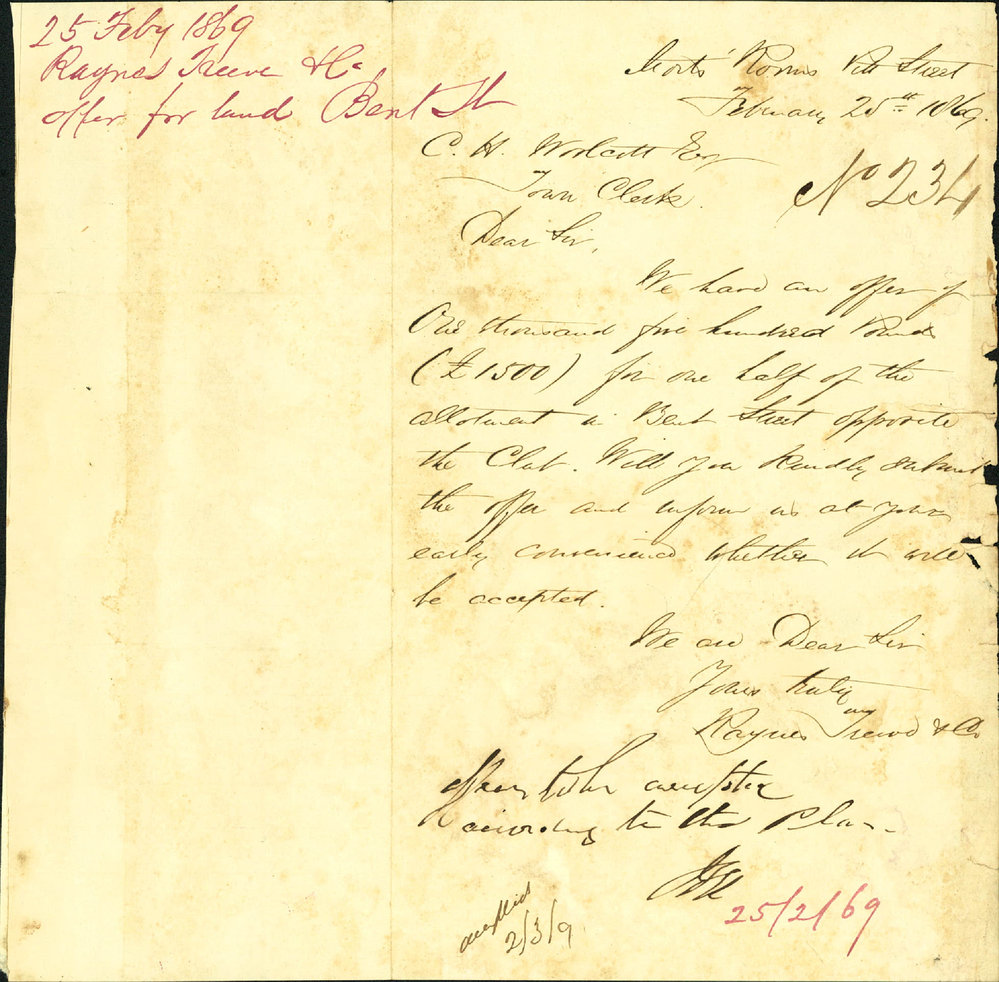 25 Feby 1869
Raynes Treeve & Co
offer for land Bent St
Mort's Rooms Pitt Street
February 25th 1869.
C. H. Woolcott Esq
Town Clerk.
No 234
Dear Sir,
We have an offer of
One thousand five hundred Pounds
(£1500) for one half of the
allotment in Bent Street opposite
the Club. Will you kindly submit
the offer and inform us at your
early convenience whether it will
be accepted.
We are Dear Sir
Yours truly
Raynes Treeve & Co
Offer to be accepted
according to the Plan.
25/2/69
2/3/9